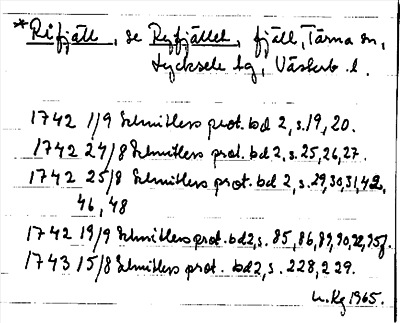 *Rifjäll, se Ryfjället, fjäll, Tärna sn,
Lycksele lg, Västerb. l.
1742 1/9 Schnitlers prot. bd 2, s. 19, 20.
1742 24/8 Schnitlers prot. bd 2, s. 25, 26, 27.
1742 25/8 Schnitlers prot. bd 2, s. 29, 30, 31, 42,
46, 48
1742 19/9 Schnitlers prot. bd 2, s. 85, 86, 89, 90, 92, 95f.
1743 15/8 Schnitlers prot. bd 2, s. 228, 229.
1965.